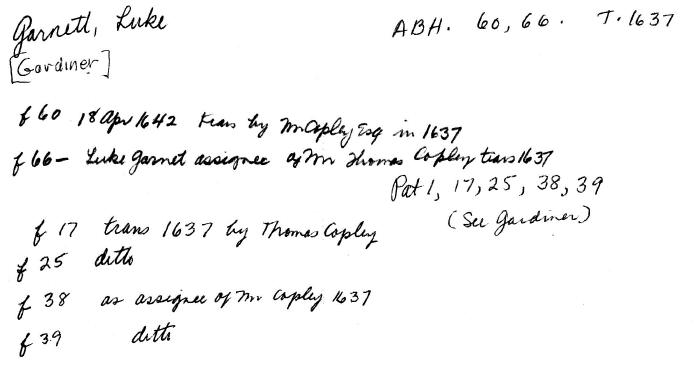 Garnett, Luke
ABH. 60, 66. T. 1637
[Gardiner]
f 60 18 Apr 1642 trans by Mr Copley, Esq in 1637
f 66 - Luke Garnet assignee of Mr Thomas Copley trans 1637
Pat 1, 17, 25, 38, 39
(See Gardiner)
f 17 trans 1637 by Thomas Copley
f 25 ditto
f 38 as assignee of Mr Copley 1637
f 39 ditto